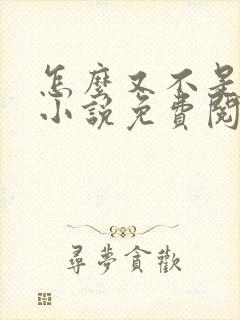 怎麼又不是
小說免費閱
尋夢貪歡